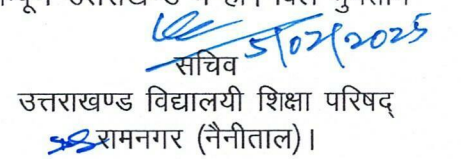 5/02/2025
सचिव
उत्तराखण्ड विद्यालयी शिक्षा परिषद्
रामनगर (नैनीताल)।